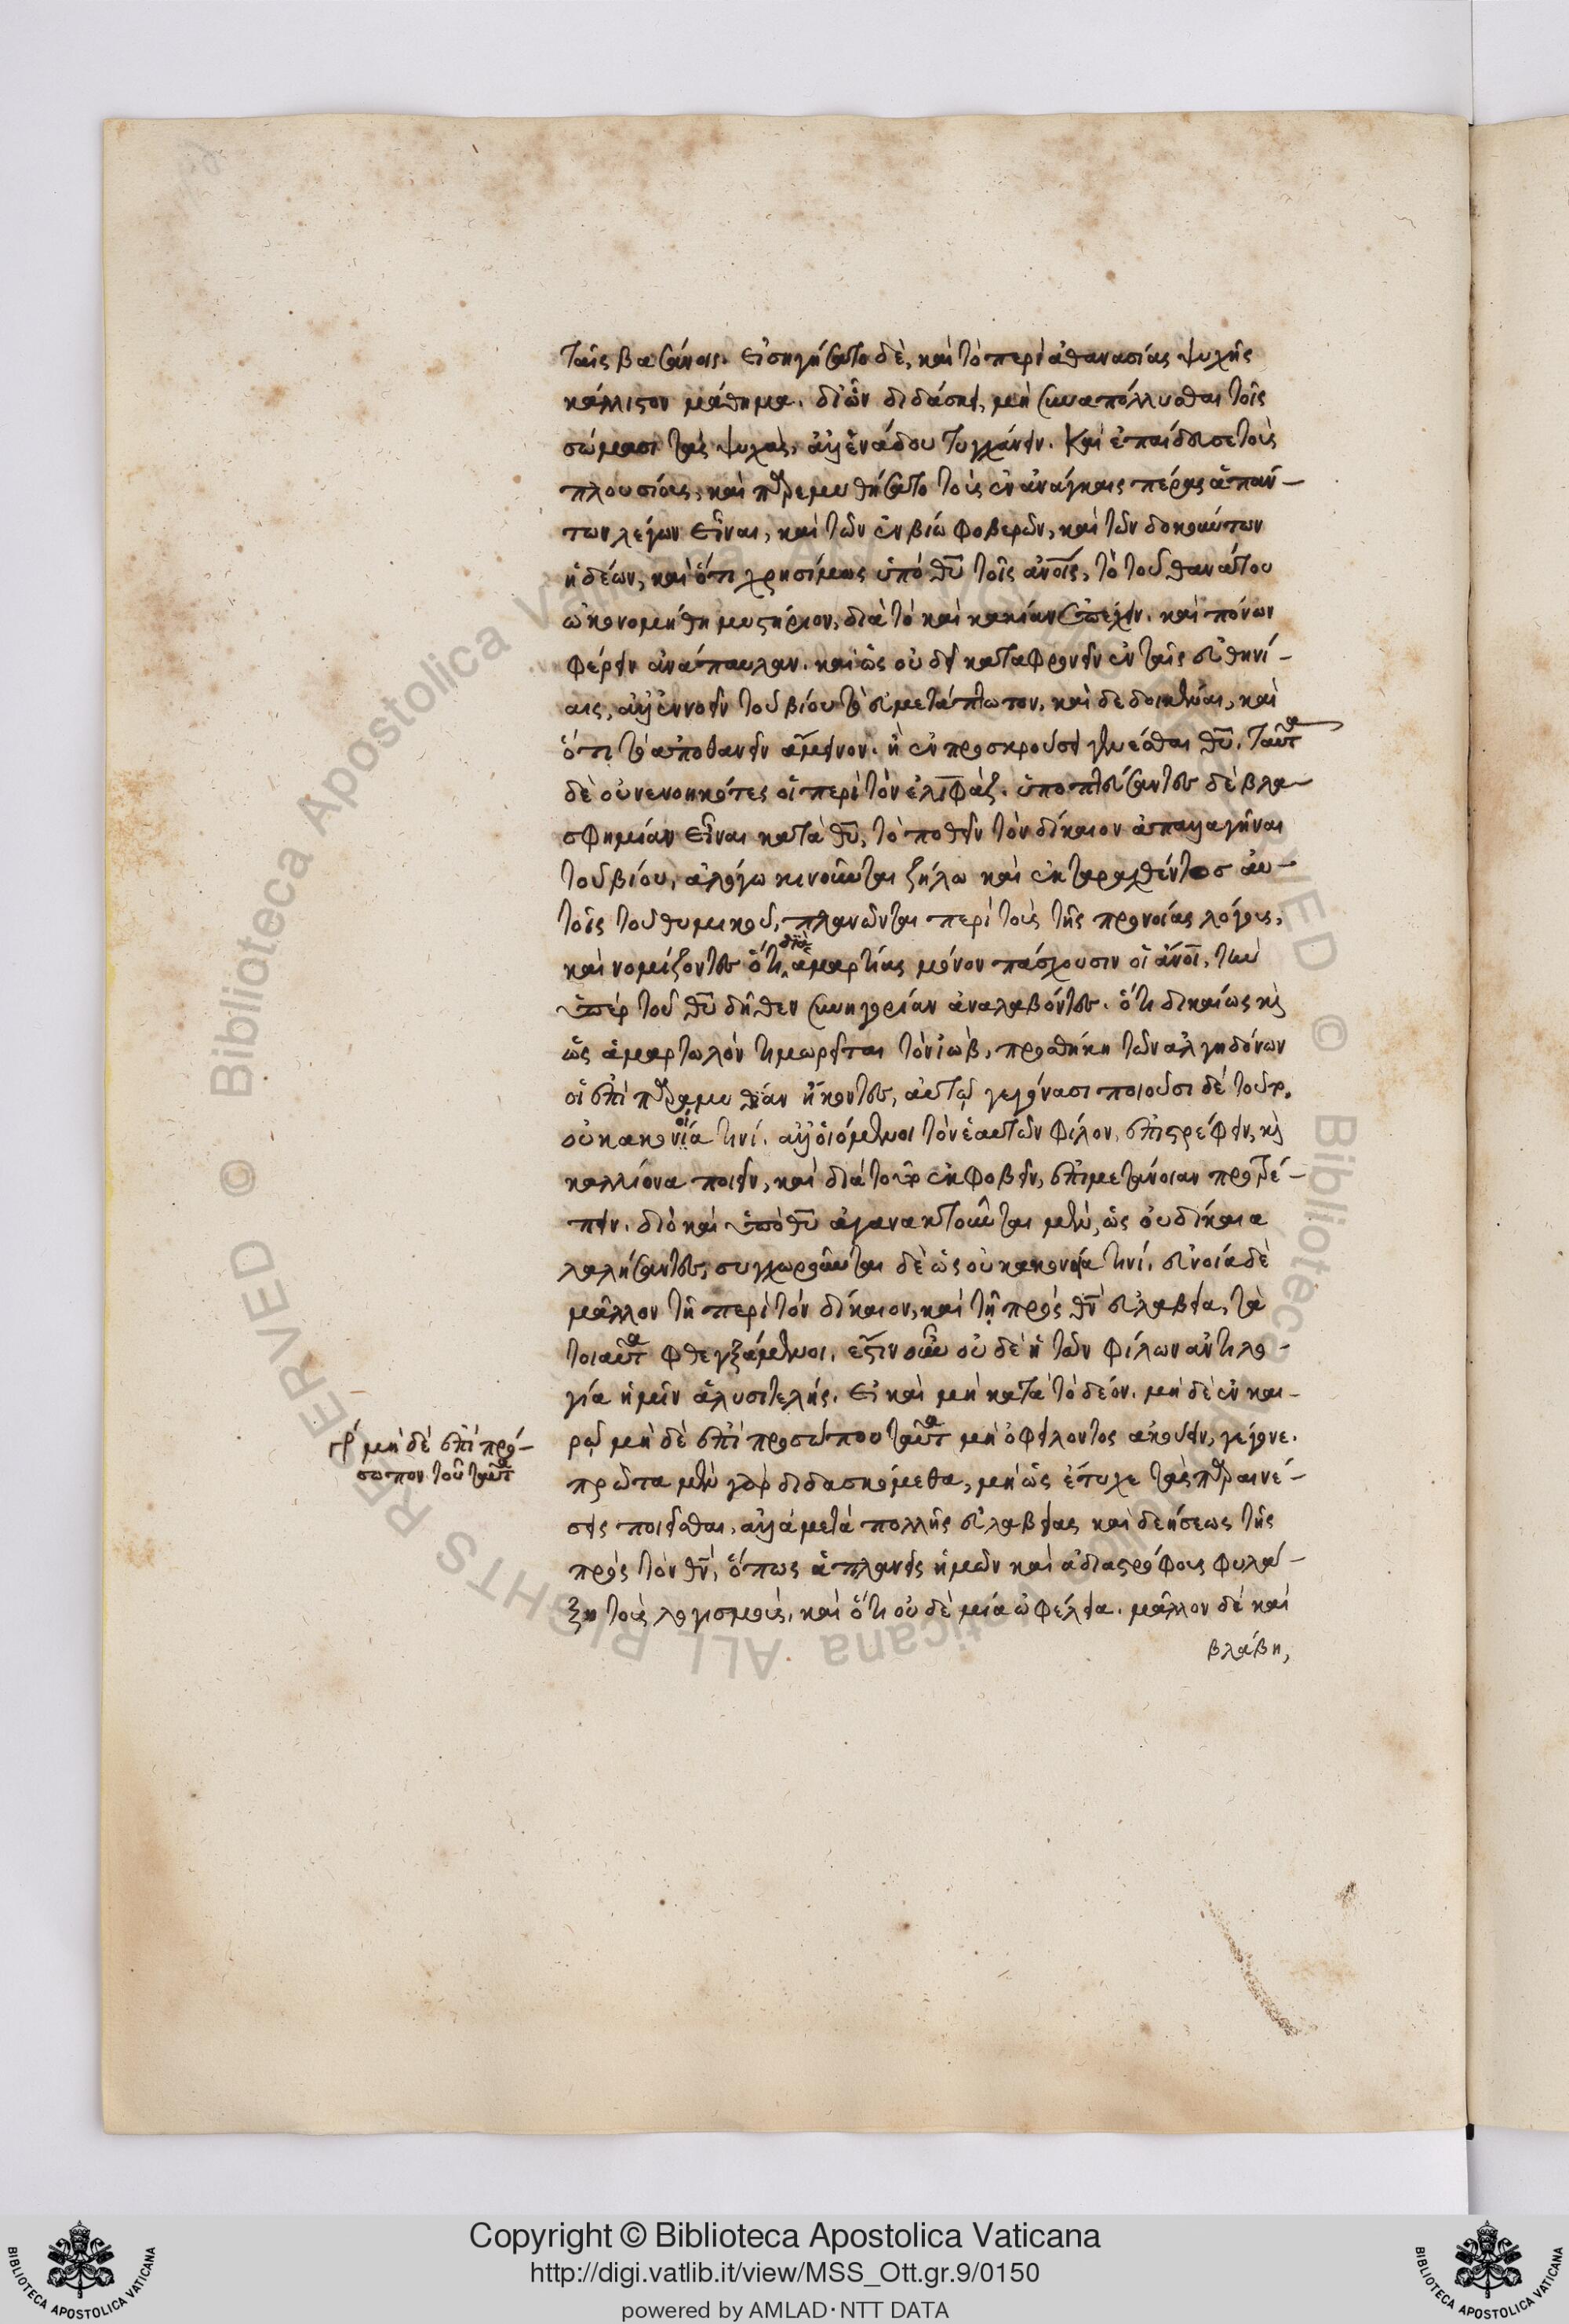 ταῖς βασάνοις. εἰσηγήσατο δὲ, καὶ τὸ περὶ ἀθανασίας ψυχῆς
κάλλιστον μάθημα. δι' ὧν διδάσκει, μὴ συναπόλλυσθαι τοῖς
σώμασι τὰς ψυχὰς, ἀλλ' ἐν ἅδου τυγχάνειν. καὶ ἐπαίδευσε τοὺς
πλουσίους, καὶ παρεμυθήσατο τοὺς ἐν ἀνάγκαις πέρας ἁπάν-
των λέγων εἶναι, καὶ τῶν ἐν βίῳ φοβερῶν, καὶ τῶν δοκούντων
ἡδέων, καὶ ὅτι χρησίμως ὑπὸ θ̅υ̅ τοῖς ἀν̅ο̅ι̅ς̅, τὸ τοῦ θανάτου
ὠκονομήθη μυστήριον, διὰ τὸ καὶ κακίαν ἐπέχειν. καὶ πόνων
φέρειν ἀνάπαυλαν. καὶ ὡς οὐ δεῖ καταφρονεῖν ἐν ταῖς εὐθηνί-
αις, ἀλλ' ἐννοεῖν τοῦ βίου τὸ εὐμετάπτωτον, καὶ δεδοικέναι, καὶ
ὅτι τὸ ἀποθανεῖν ἄμεινον. ἢ ἐν προσκρούσει γενέσθαι θ̅υ̅. ταῦτα
δὲ οὐ νενοηκότες οἱ περὶ τὸν ἐλιφάζ. ὑποπτεύσαντες δὲ βλα-
σφημίαν εἶναι κατὰ θ̅υ̅, τὸ ποθεῖν τὸν δίκαιον ἀπαλλαγῆναι
τοῦ βίου, ἀλόγω κινοῦνται ζήλω καὶ ἐκταραχθέντος αὐ-
τοῖς τοῦ θυμικοῦ, πλανῶνται περὶ τοὺς τῆς προνοίας λόγους,
καὶ νομίζοντες ὅτι δι' ἁμαρτίας μόνον πάσχουσιν οἱ ἄν̅ο̅ι̅, τὴν
ὑπὲρ τοῦ θ̅υ̅ δῆθεν συνηγορίαν ἀναλαβόντες. ὅτι δικαίως καὶ
ὡς ἁμαρτωλὸν τιμωρεῖται τὸν ἰὼβ, προσθήκη τῶν ἀλγηδόνων
οἱ ἐπὶ παραμυθίαν ἥκοντες, αὐτῷ γεγόνασι ποιοῦσι δὲ τοῦτο.
οὐ κακονοία τινί. ἀλλ' οἰόμενοι τὸν ἑαυτῶν φίλον, ἐπιστρέφειν, καὶ
καλλίονα ποιεῖν, καὶ διὰ τοῦτο ἐκφοβεῖν, ἐπὶ μετάνοιαν προτρέ-
πειν. διὸ καὶ ὑπὸ θ̅υ̅ ἀγανακτοῦνται μὲν, ὡς οὐ δίκαια
λαλήσαντες, συγχωροῦνται δὲ ὡς οὐ κακονοία τινί. εὐνοία δὲ
μᾶλλον τῇ περὶ τὸν δίκαιον, καὶ τῇ πρὸς θ̅ν̅ εὐλαβεία, τὰ
τοιαῦτα φθεγξάμενοι. ἔστιν οὖν οὐδὲ ἡ τῶν φίλων ἀντιλο-
γία ἡμῖν ἀλυσιτελής. εἰ καὶ μὴ κατὰ τὸ δέον. μὴ δὲ ἐν και-
ρῷ μὴ δὲ ἐπὶ προσώπου ταῦτα μὴ ὀφείλοντος ἀκούειν, γέγονε.
πρῶτα μὲν γὰρ διδασκόμεθα, μὴ ὡς ἔτυχε τὰς παραινέ-
σεις ποιεῖσθαι, ἀλλὰ μετὰ πολλῆς εὐλαβείας καὶ δεήσεως τῆς
πρὸς τὸν θ̅ν̅, ὅπως ἀπλανεῖς ἡμῶν καὶ ἀδιαστρόφους φυλά-
ξη τοὺς λογισμοὺς, καὶ ὅτι οὐδὲ μία ὠφέλεια. μᾶλλον δὲ καὶ
βλάβη,
γρ μὴ δὲ ἐπὶ πρό-
σωπον τοῦ ταῦτα
Copyright © Biblioteca Apostolica Vaticana
http://digi.vatlib.it/view/MSS_Ott.gr.9/0150
powered by AMLAD·NTT DATA
BIBLIOTECA APOSTOLICA VATICANA
BIBLIOTECA APOSTOLICA VATICANA